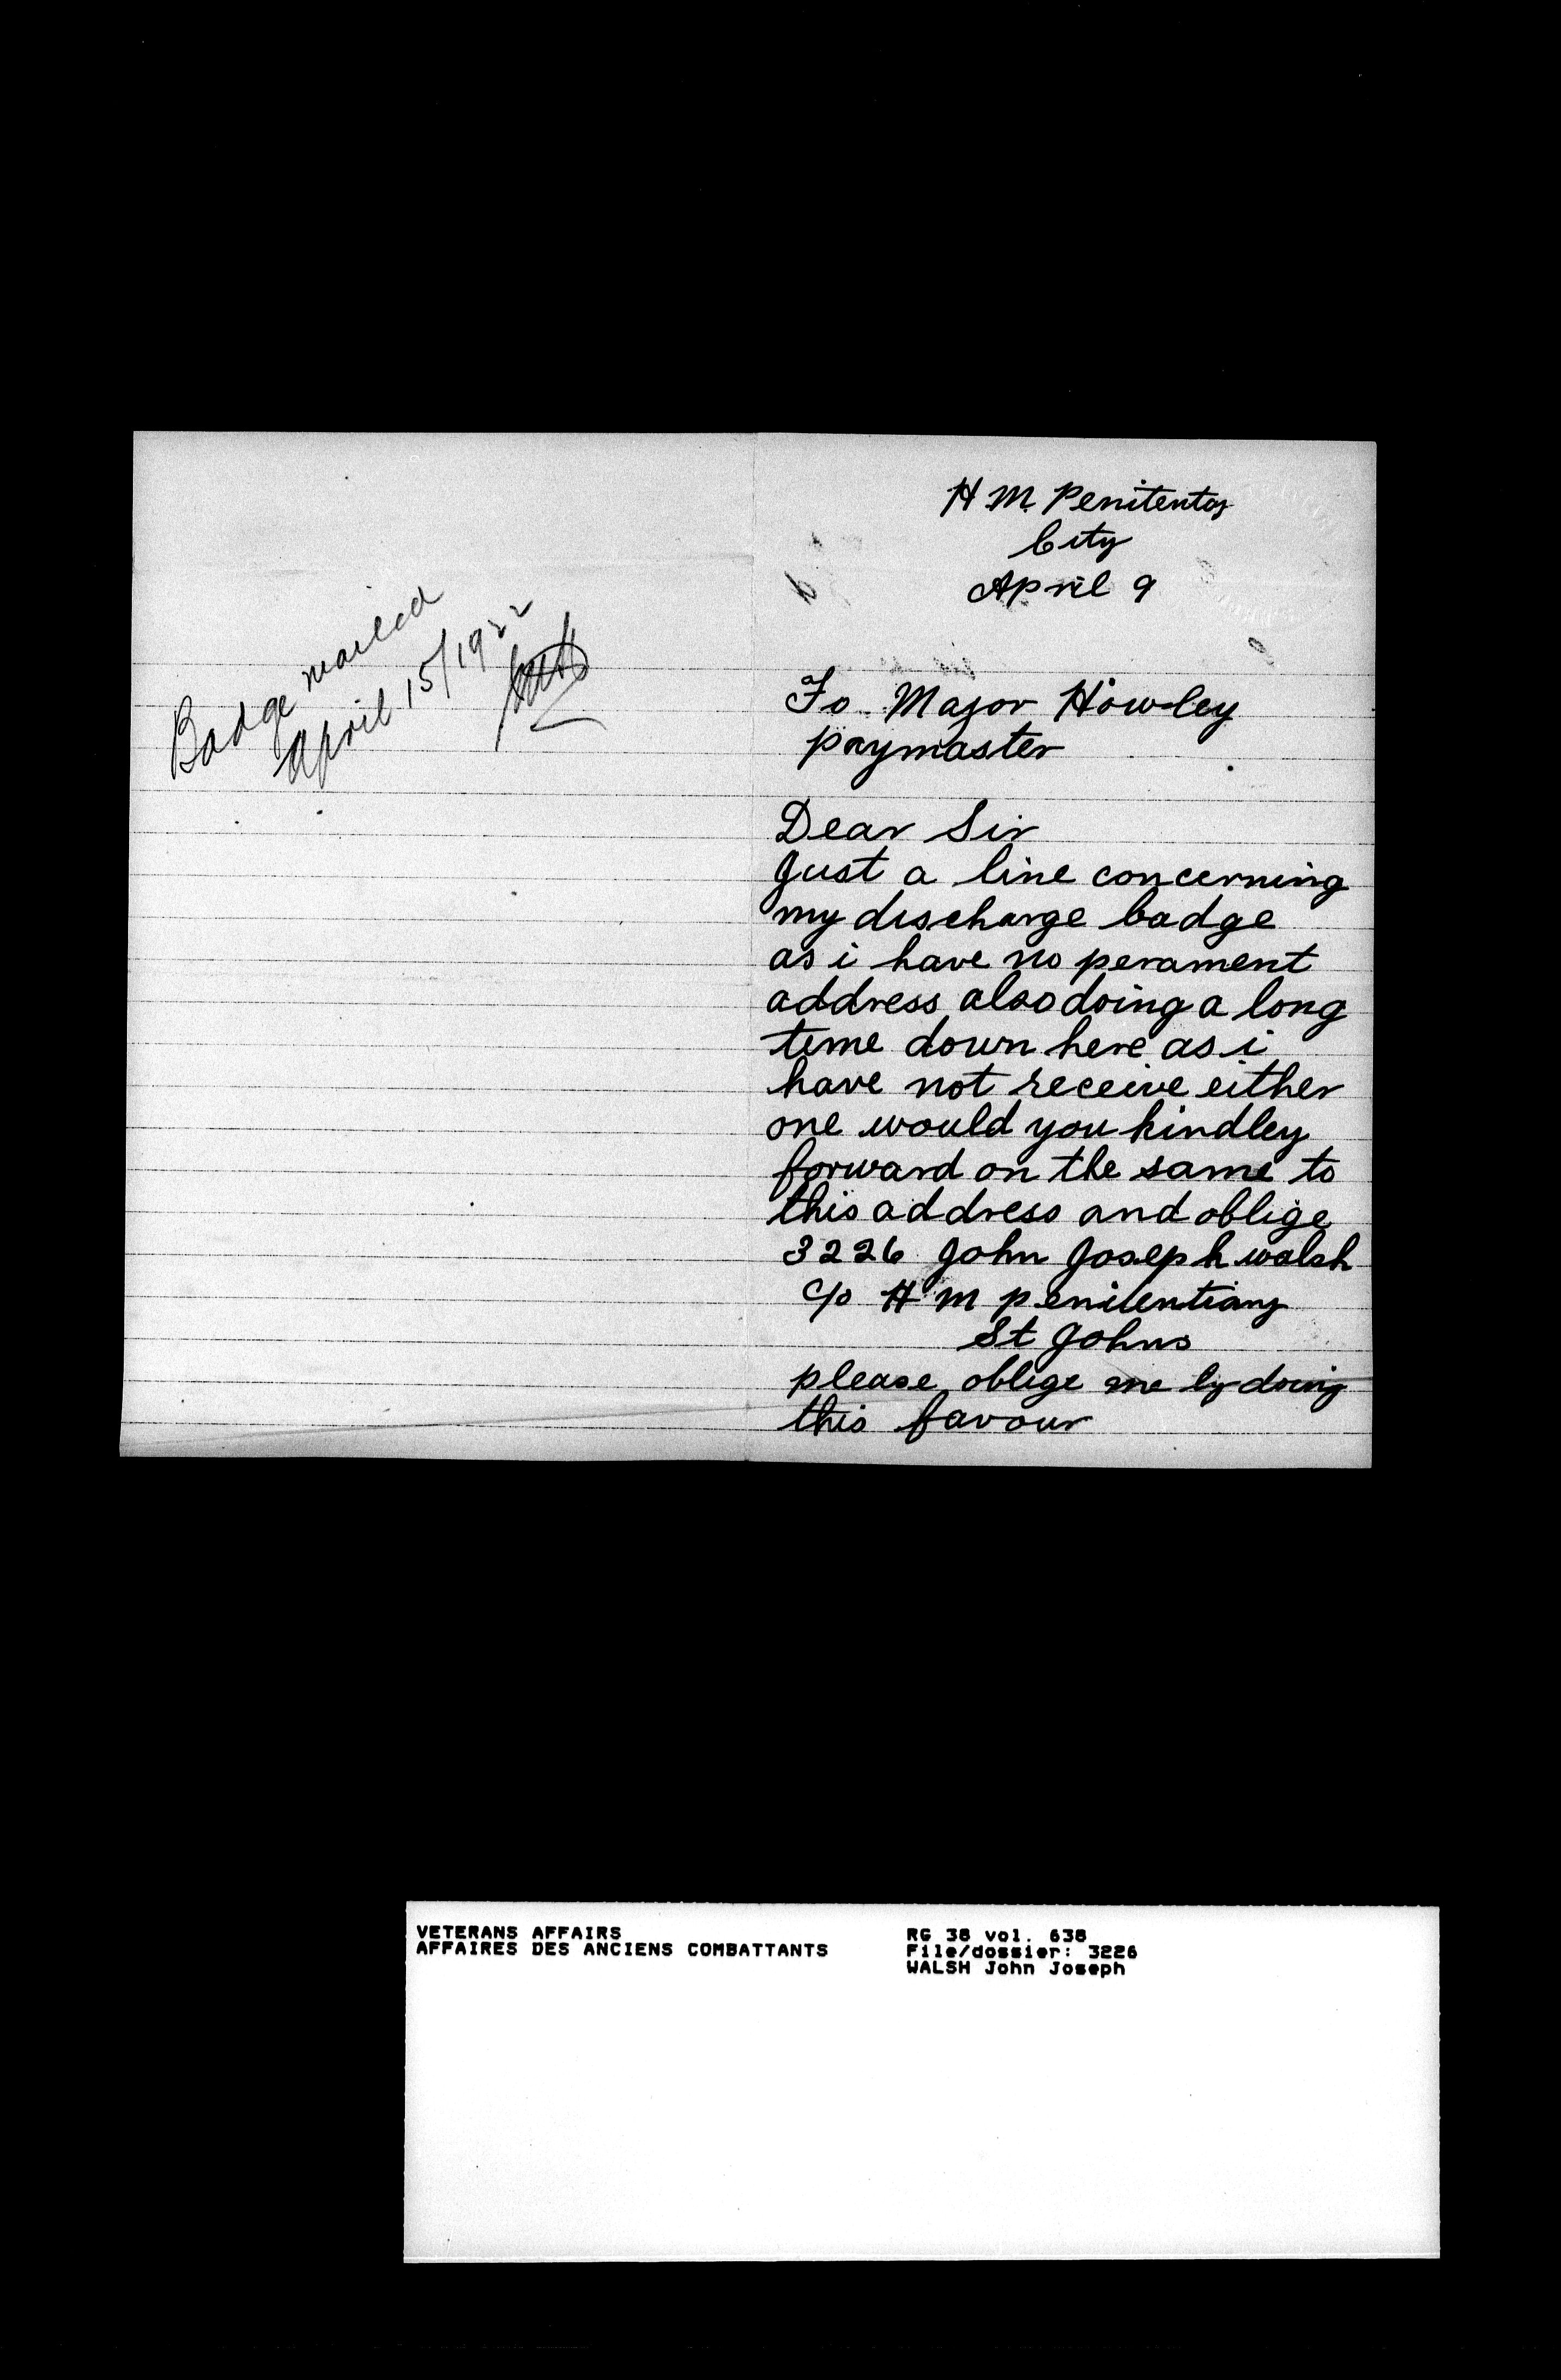 Badge mailed
April 15/1922
H.M. Penitentoy
City
April 9
To Major Howley
paymaster
Dear Sir
Just a line concerning
my discharge badge
as i have no perament
address also doing a long
time down here as i
have not receive either
one would you kindley
forward on the same to
this address and oblige
3226 John Joseph walsh
c/o H M penitentiary
St Johns
please oblige me by doing
this favour
VETERANS AFFAIRS
AFFAIRES DES ANCIENS COMBATTANTS
RG 38 vol. 638
File/dossier: 3226
WALSH John Joseph